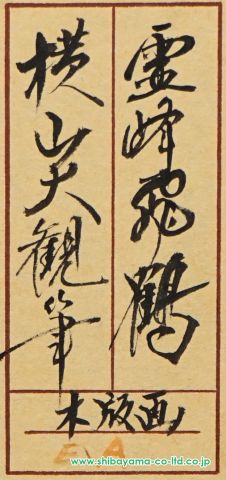 霊峰飛鶴
横山大観筆
木版画
E.A
www.shibayama-co-ltd.co.jp